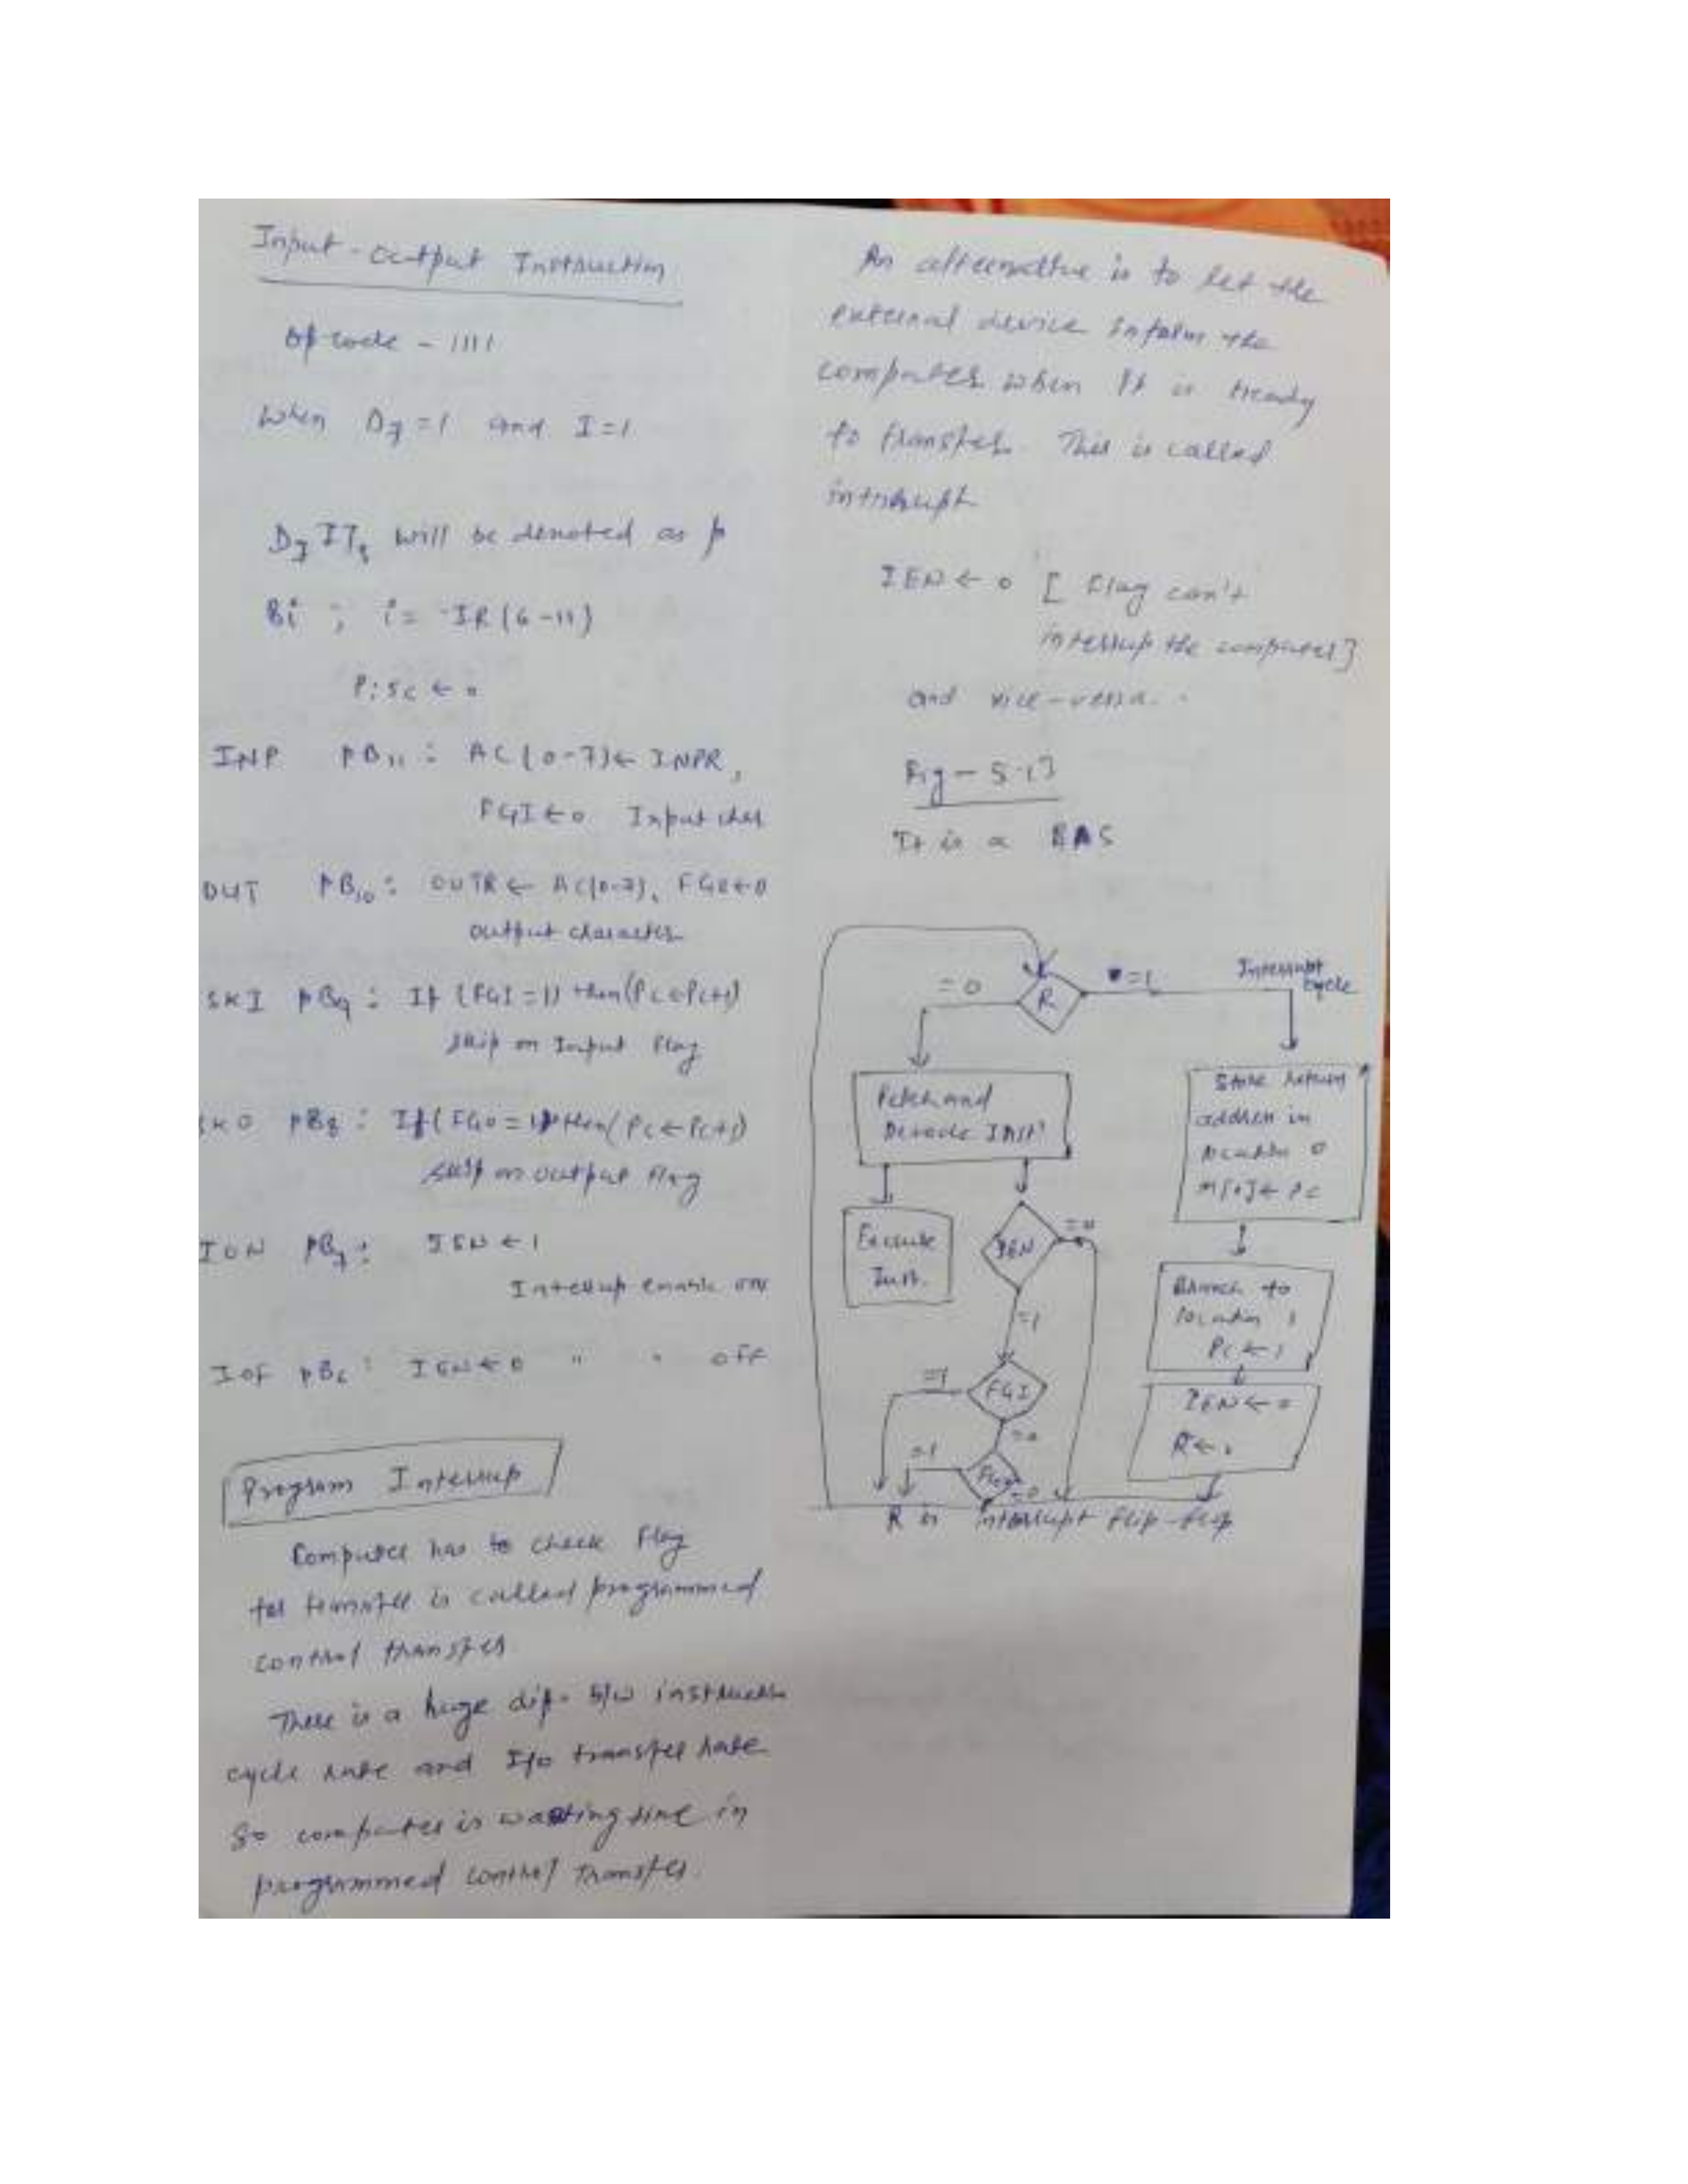 Input-Output Instruction
Opcode - 1111
When D7=1 and I=1
D7IT3 will be denoted as p
Bi ; i = IR(6-11)
P:SC ← 0
INP pB11 : AC(0-7)← INPR,
FGI←0 Input char
OUT pB10 : OUTR ← AC(0-7), FGO←0
output character
SKI pB9 : If (FGI=1) then(PC←PC+1)
skip on Input flag
SKO pB8 : If(FGO=1) then(PC←PC+1)
skip on output flag
ION pB7 : IEN ← 1
Interrup enable on
IOF pB6 : IEN←0 " " off
Program Interrup
Computer has to check flag
for transfer is called programmed
control transfer
There is a huge dif. b/w instruction
cycle rate and I/O transfer rate
So computer is wasting time in
programmed control transfer.
An alternative is to let the
external device inform the
computer when it is ready
to transfer. This is called
interrupt
IEN ← 0 [ flag can't
interrup the computer]
and vice-versa.
Fig - 5.13
It is a BAS
=0 R =1 Interrupt
cycle
Fetch and
Decode Instn
Execute
Inst.
IEN =0
=1
=1 FGI
=0
=1
=0
Store return
address in
location 0
M[0]← PC
Branch to
location 1
PC ← 1
IEN ← 0
R ←
R is interrupt flip-flop